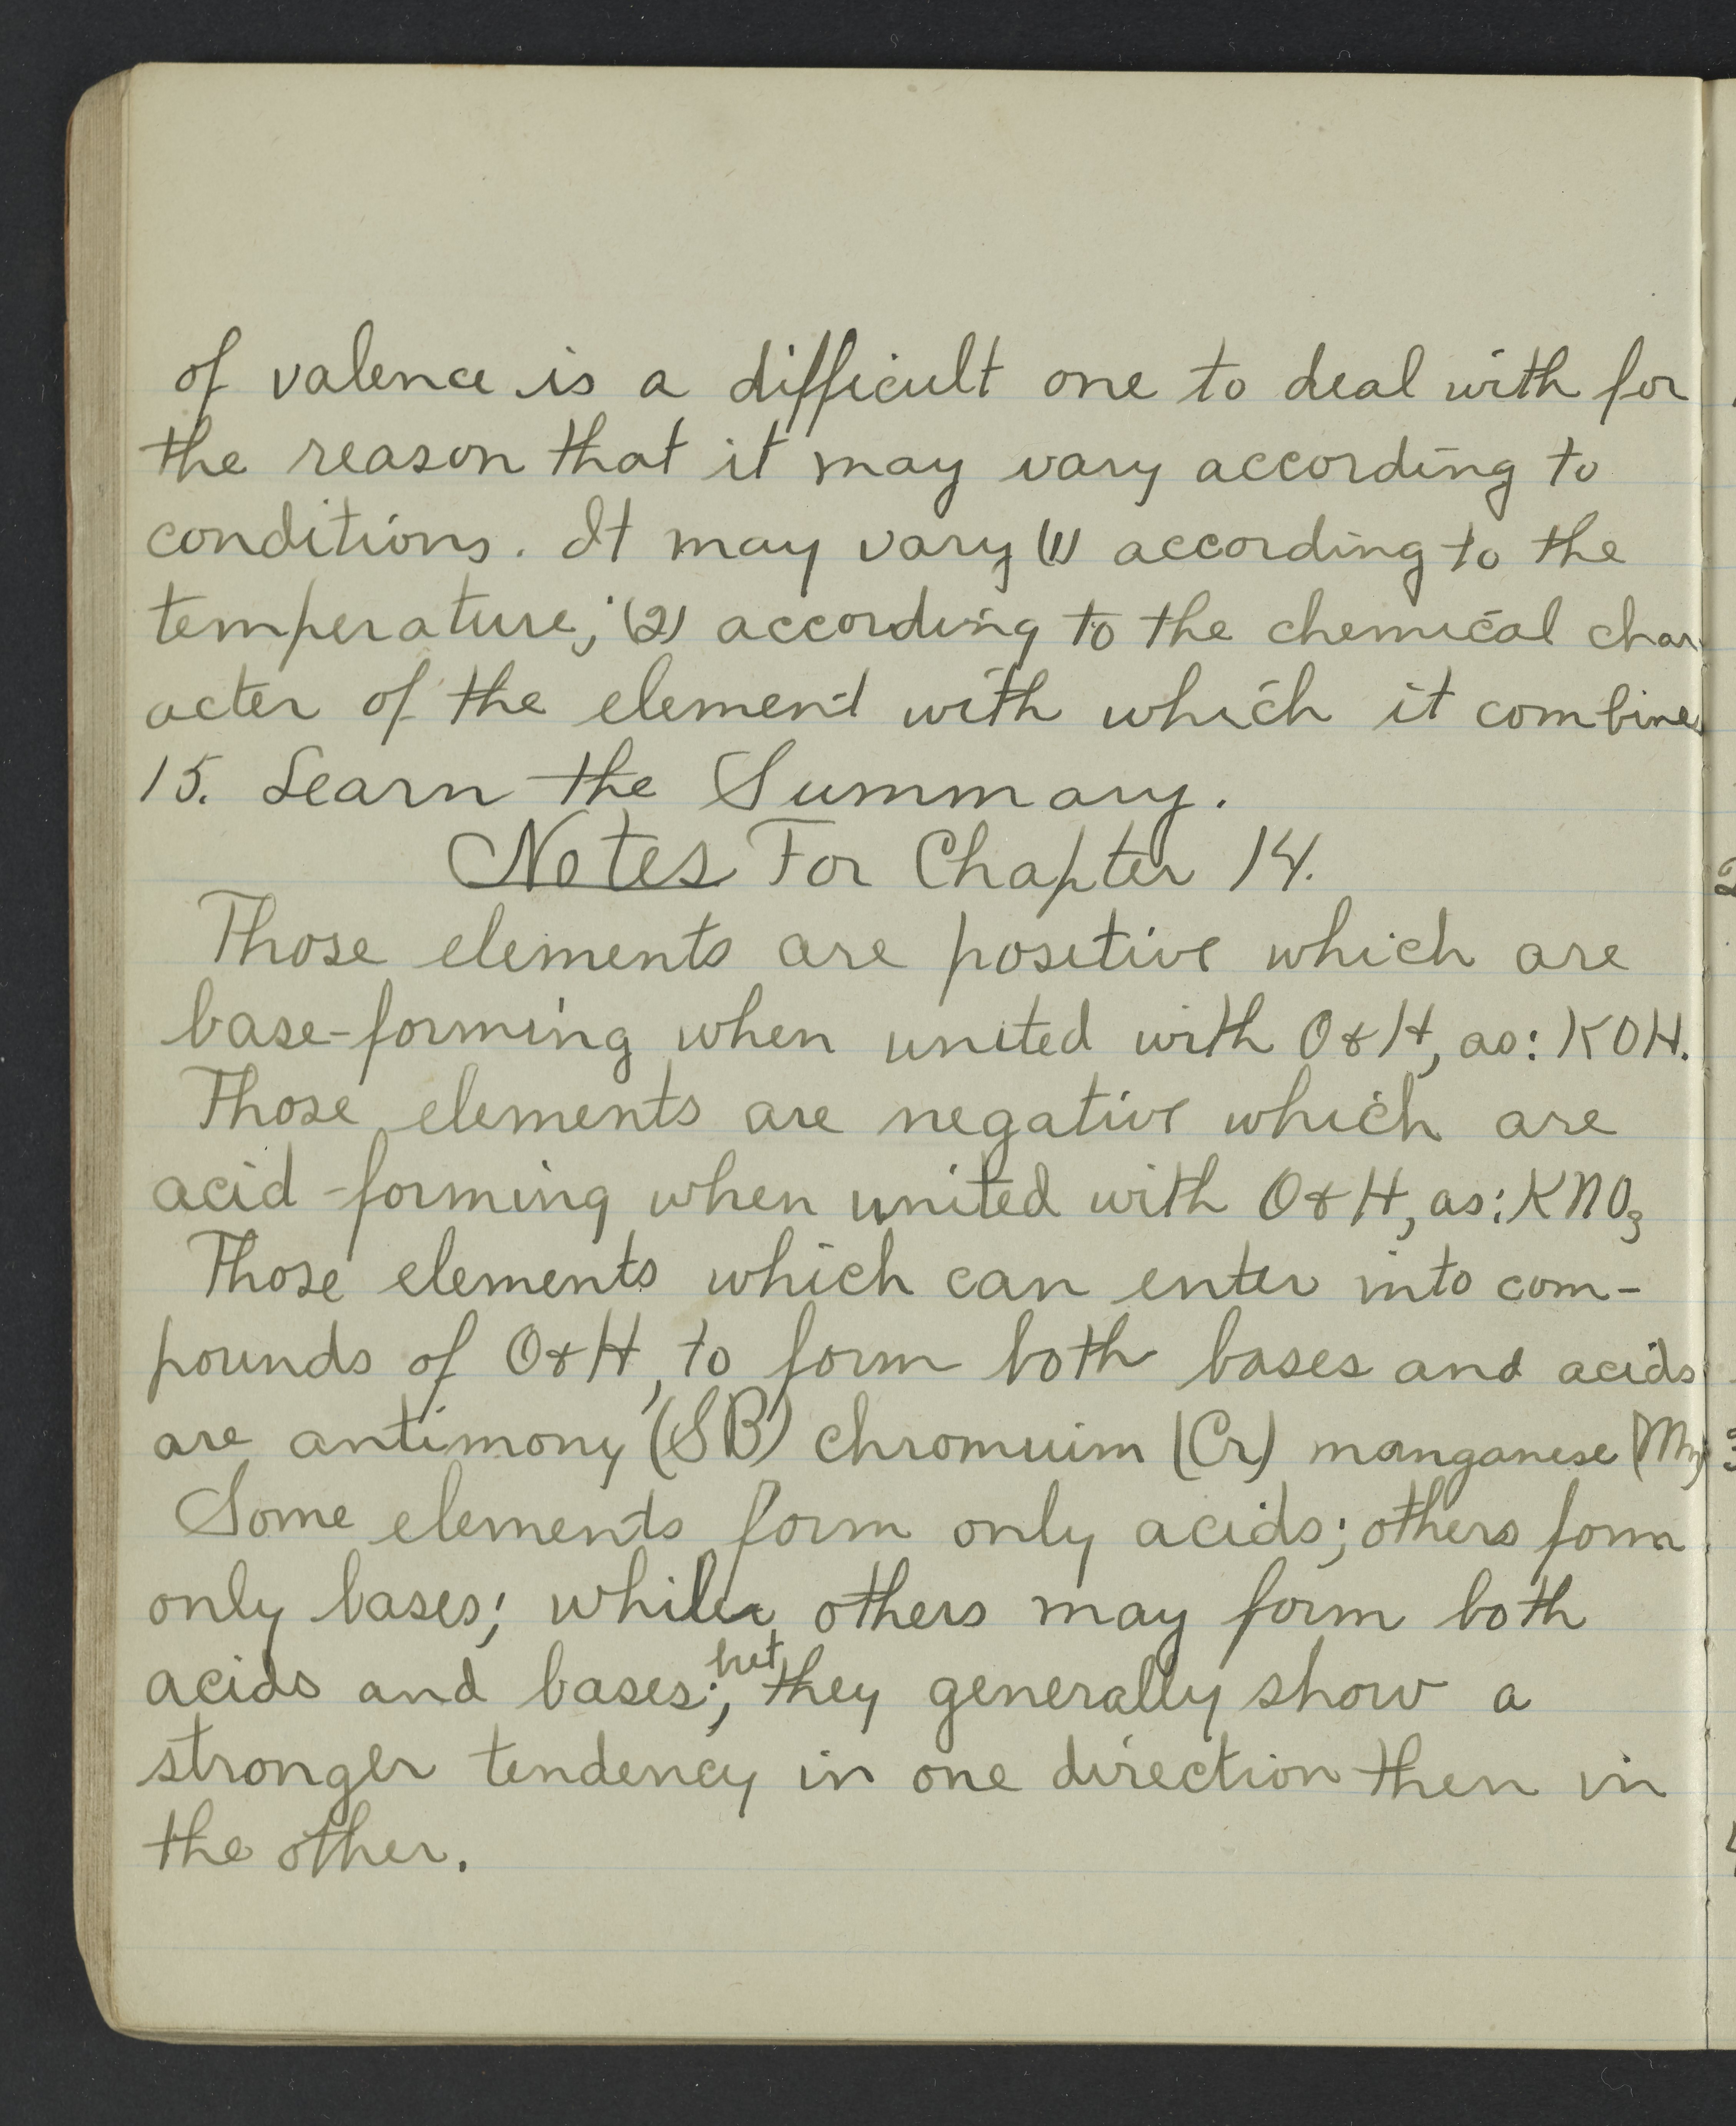 of valence is a difficult one to deal with for
the reason that it may vary according to
conditions. It may vary (1) according to the
temperature; (2) according to the chemical char
acter of the element with which it combines
15. Learn the Summary.
Notes For Chapter 14.
Those elements are positive which are
base-forming when united with O & H, as: KOH.
Those elements are negative which are
acid-forming when united with O & H, as: KNO3
Those elements which can enter into com-
pounds of O & H, to form both bases and acids
are antimony (SB) chromuim (Cr) manganese (Mn)
Some elements form only acids; others form
only bases; while others may form both
acids and bases; but they generally show a
stronger tendency in one direction then in
the other.